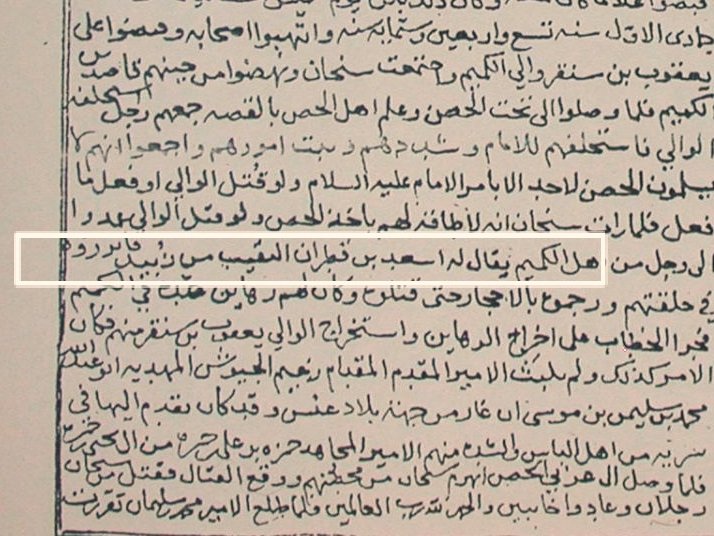 جمادى الاول سنه تسع واربعين وستمايه سنه وانتهبوا اصحابه وقبضوا على
يعقوب بن سنقر والي الكميم واجتمعت سنحان ونهضوا من حينهم قاصدين
الكميم فلما وصلوا الى تحت الحصن وعلم اهل الحصن بالقصه جمعهم رجل استحلفه
الوالي فاستحلفهم للامام وشددهم وثبت امورهم واجمعوا انهم لا
يسلمون الحصن لاحد الا بامر الامام عليه السلام ولو قتل الوالي او فعل ما
فعل فلما رات سنحان انه لا طاقة لهم باخذ الحصن ولو قتل الوالي عمدوا
الى رجل من اهل الكميم يقال له اسعد بن قطران النقيب من زبيد فابرزوه
في حلقتهم ورجموه بالاحجار حتى قتلوه وكان لهم رهاين في الكميم
فجرا الخطاب على اخراج الرهاين واستخراج الوالي يعقوب بن سنقر منهم فكان
الامر كذلك ولم يلبث الامير المقدم المقدام زعيم الجيوش المهديه ابو عبدالله
محمد بن سليمن بن موسى ان غار من جهة بلاد عنس وقد كان تقدم اليها في
سريه من اهل الباس والشده منهم الامير المجاهد حمزه بن علي حمزه من
فلما وصل الى عربي الحصن انهزم سنحان من محطتهم ووقع القتال فقتل من سنحان
رجلان وعادوا خايبين والحمد لله رب العالمين فلما طلع الامير محمد بن سليمان تقررت